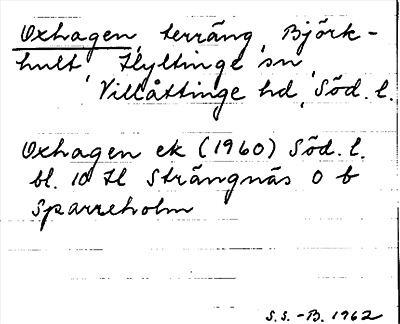 Oxhagen, terräng, Björk-
hult, Hyltinge sn,
Villåttinge hd, Söd. l.
Oxhagen ek (1960) Söd. l.
bl. 10 H Strängnäs O b
Sparreholm
S.S.-B. 1962